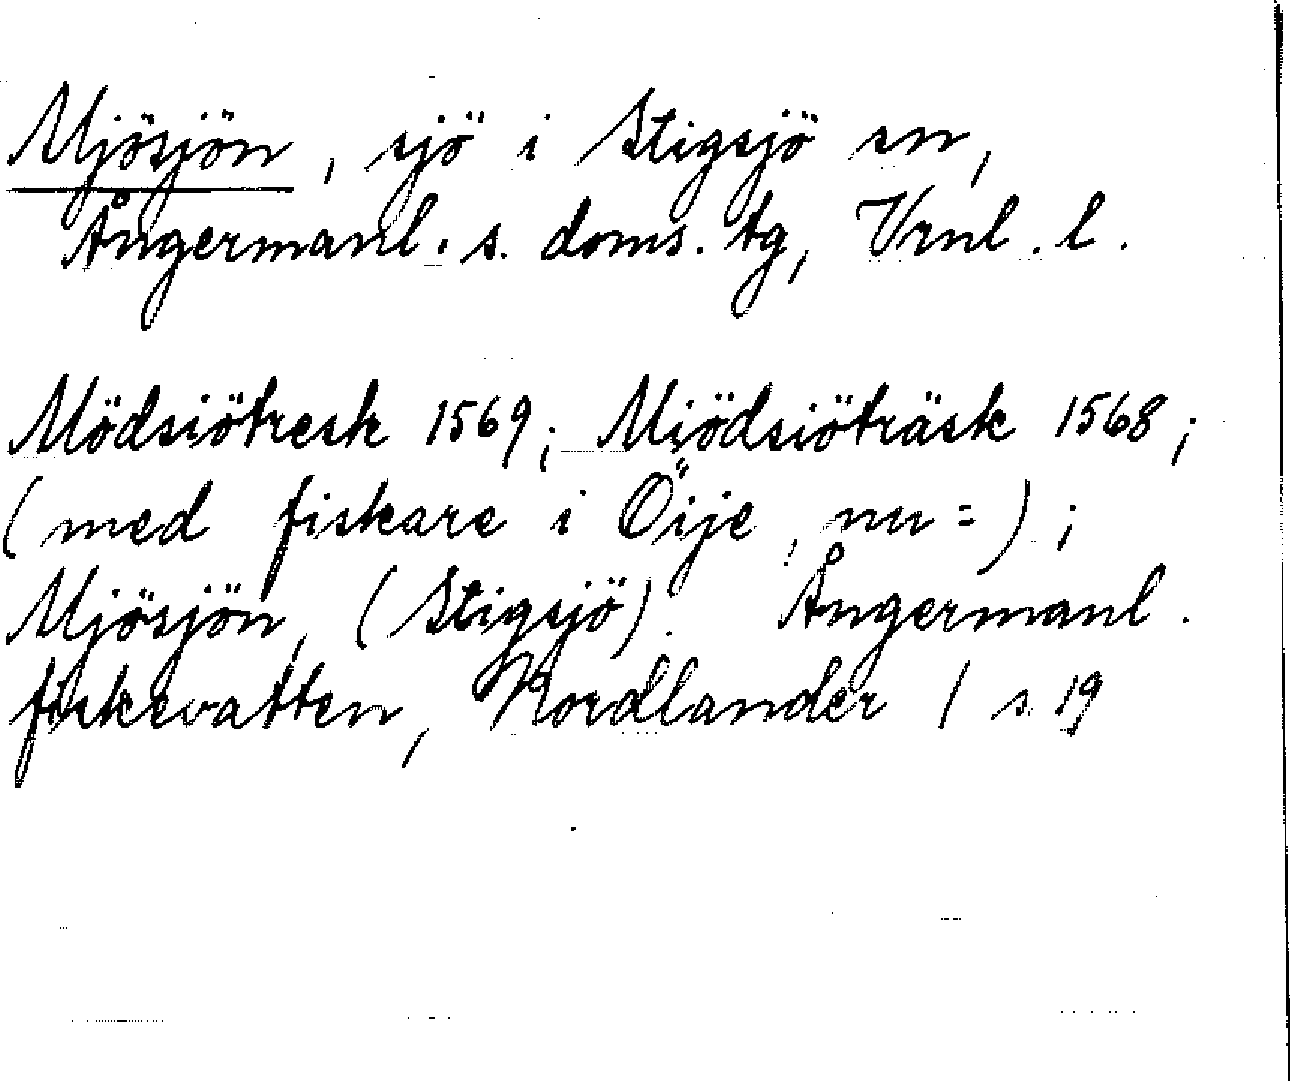 Mjösjön, sjö i Stigsjö sn,
Ångermanl. s. doms. tg, Vrnl. l.
Mödsiötresk 1569; Miödsiöträsk 1568;
(med fiskare i Öije, nu = );
Mjösjön, (Stigsjö). Ångermanl.
fiskevatten, Nordlander / s. 19